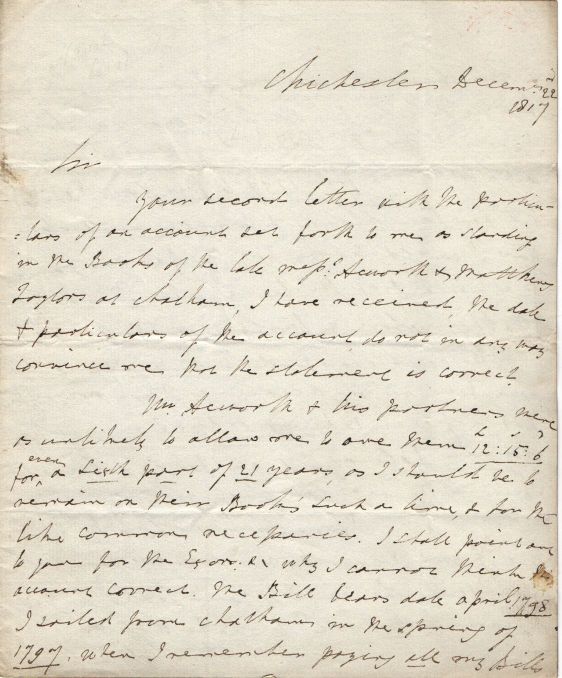 Chichester Decem.r 22
1817
Sir
Your second letter with the particu-
-lars of an account set forth to me as standing
in the Books of the late Mess.rs Acworth & Matthew
Taylors at Chatham, I have received, the date
& particulars of the account do not in any way
convince me that the statement is correct
Mr Acworth & his partners were
as unlikely to allow me to owe them £ s d 12:15:6
for even a sixth part of 21 years, as I should be to
remain on their Books such a time, & for the
like common necessaries. I shall point out
to you for the Exors. &c why I cannot think the
account correct. The Bill bears date April 1798
I sailed from Chatham in the spring of
1797, when I remember paying all my Bills